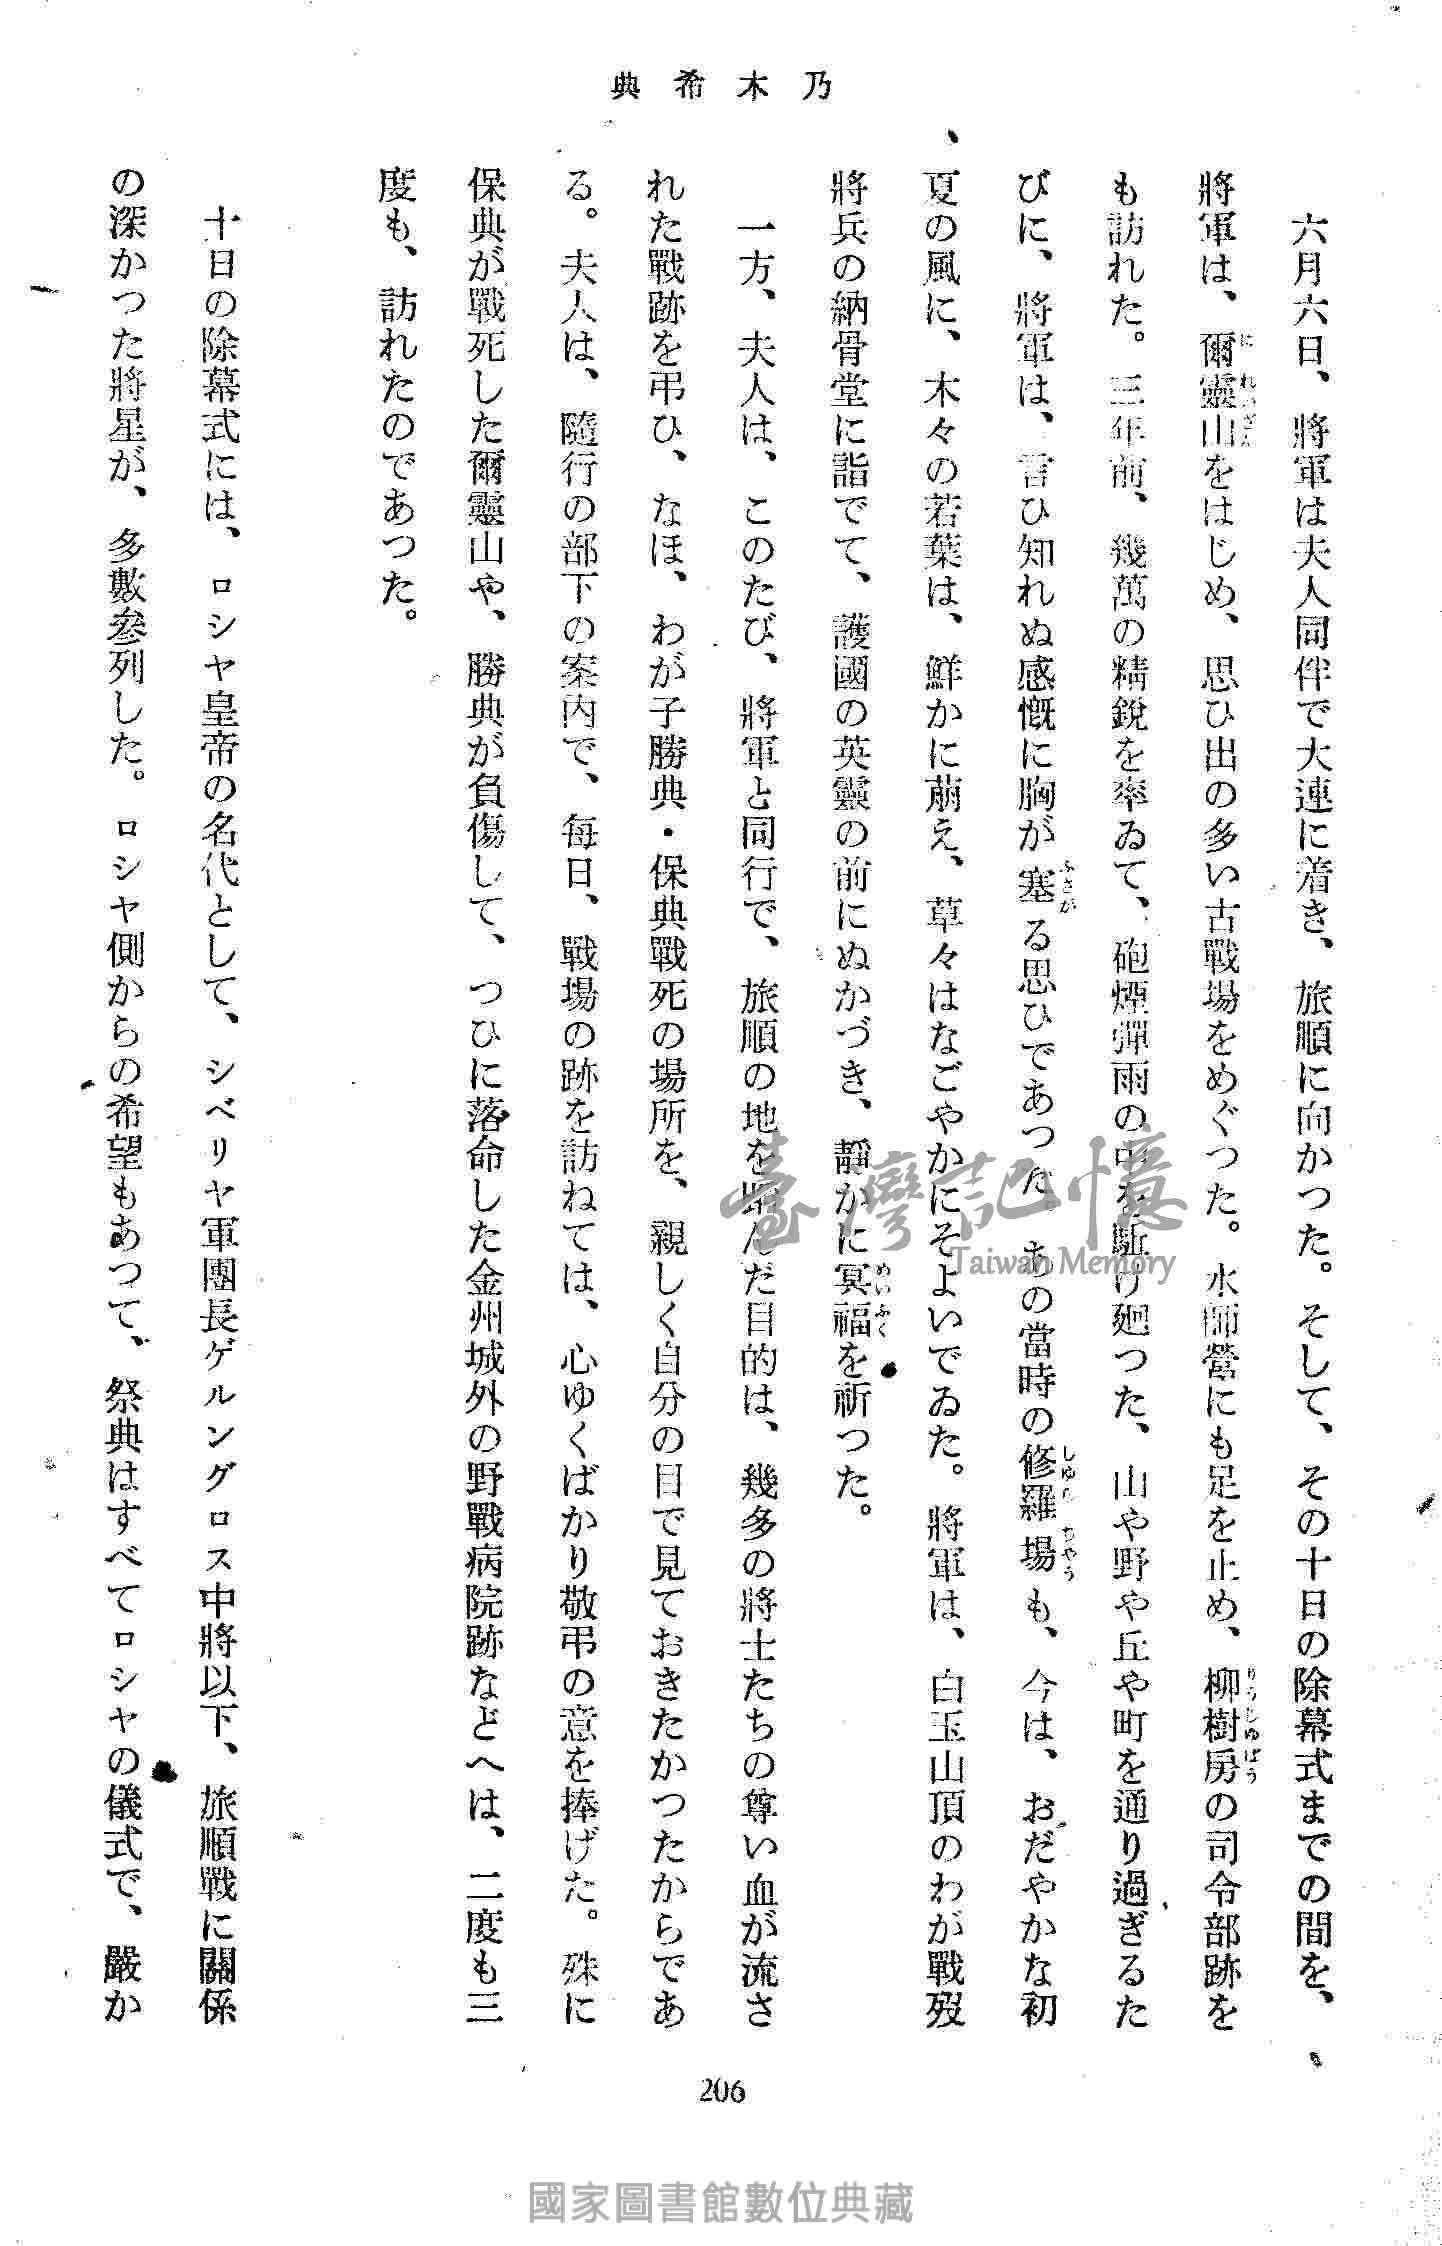 乃木希典
六月六日、將軍は夫人同伴で大連に着き、旅順に向かつた。そして、その十日の除幕式までの間を、
將軍は、爾靈山をはじめ、思ひ出の多い古戰場をめぐつた。水師營にも足を止め、柳樹房の司令部跡を
も訪れた。三年前、幾萬の精銳を率ゐて、砲煙彈雨の中を駈け廻つた、山や野や丘や町を通り過ぎるた
びに、將軍は、言ひ知れぬ感慨に胸が塞る思ひであつた。あの當時の修羅場も、今は、おだやかな初
夏の風に、木々の若葉は、鮮かに萠え、草々はなごやかにそよいでゐた。將軍は、白玉山頂のわが戰歿
將兵の納骨堂に詣でて、護國の英靈の前にぬかづき、靜かに冥福を祈つた。
一方、夫人は、このたび、將軍と同行で、旅順の地を踏んだ目的は、幾多の將士たちの尊い血が流さ
れた戰跡を弔ひ、なほ、わが子勝典・保典戰死の場所を、親しく自分の目で見ておきたかつたからであ
る。夫人は、隨行の部下の案內で、每日、戰場の跡を訪ねては、心ゆくばかり敬弔の意を捧げた。殊に
保典が戰死した爾靈山や、勝典が負傷して、つひに落命した金州城外の野戰病院跡などへは、二度も三
度も、訪れたのであつた。
十日の除幕式には、ロシヤ皇帝の名代として、シベリヤ軍團長ゲルングロス中將以下、旅順戰に關係
の深かつた將星が、多數參列した。ロシヤ側からの希望もあつて、祭典はすべてロシヤの儀式で、嚴か
206
臺灣記憶
Taiwan Memory
國家圖書館數位典藏